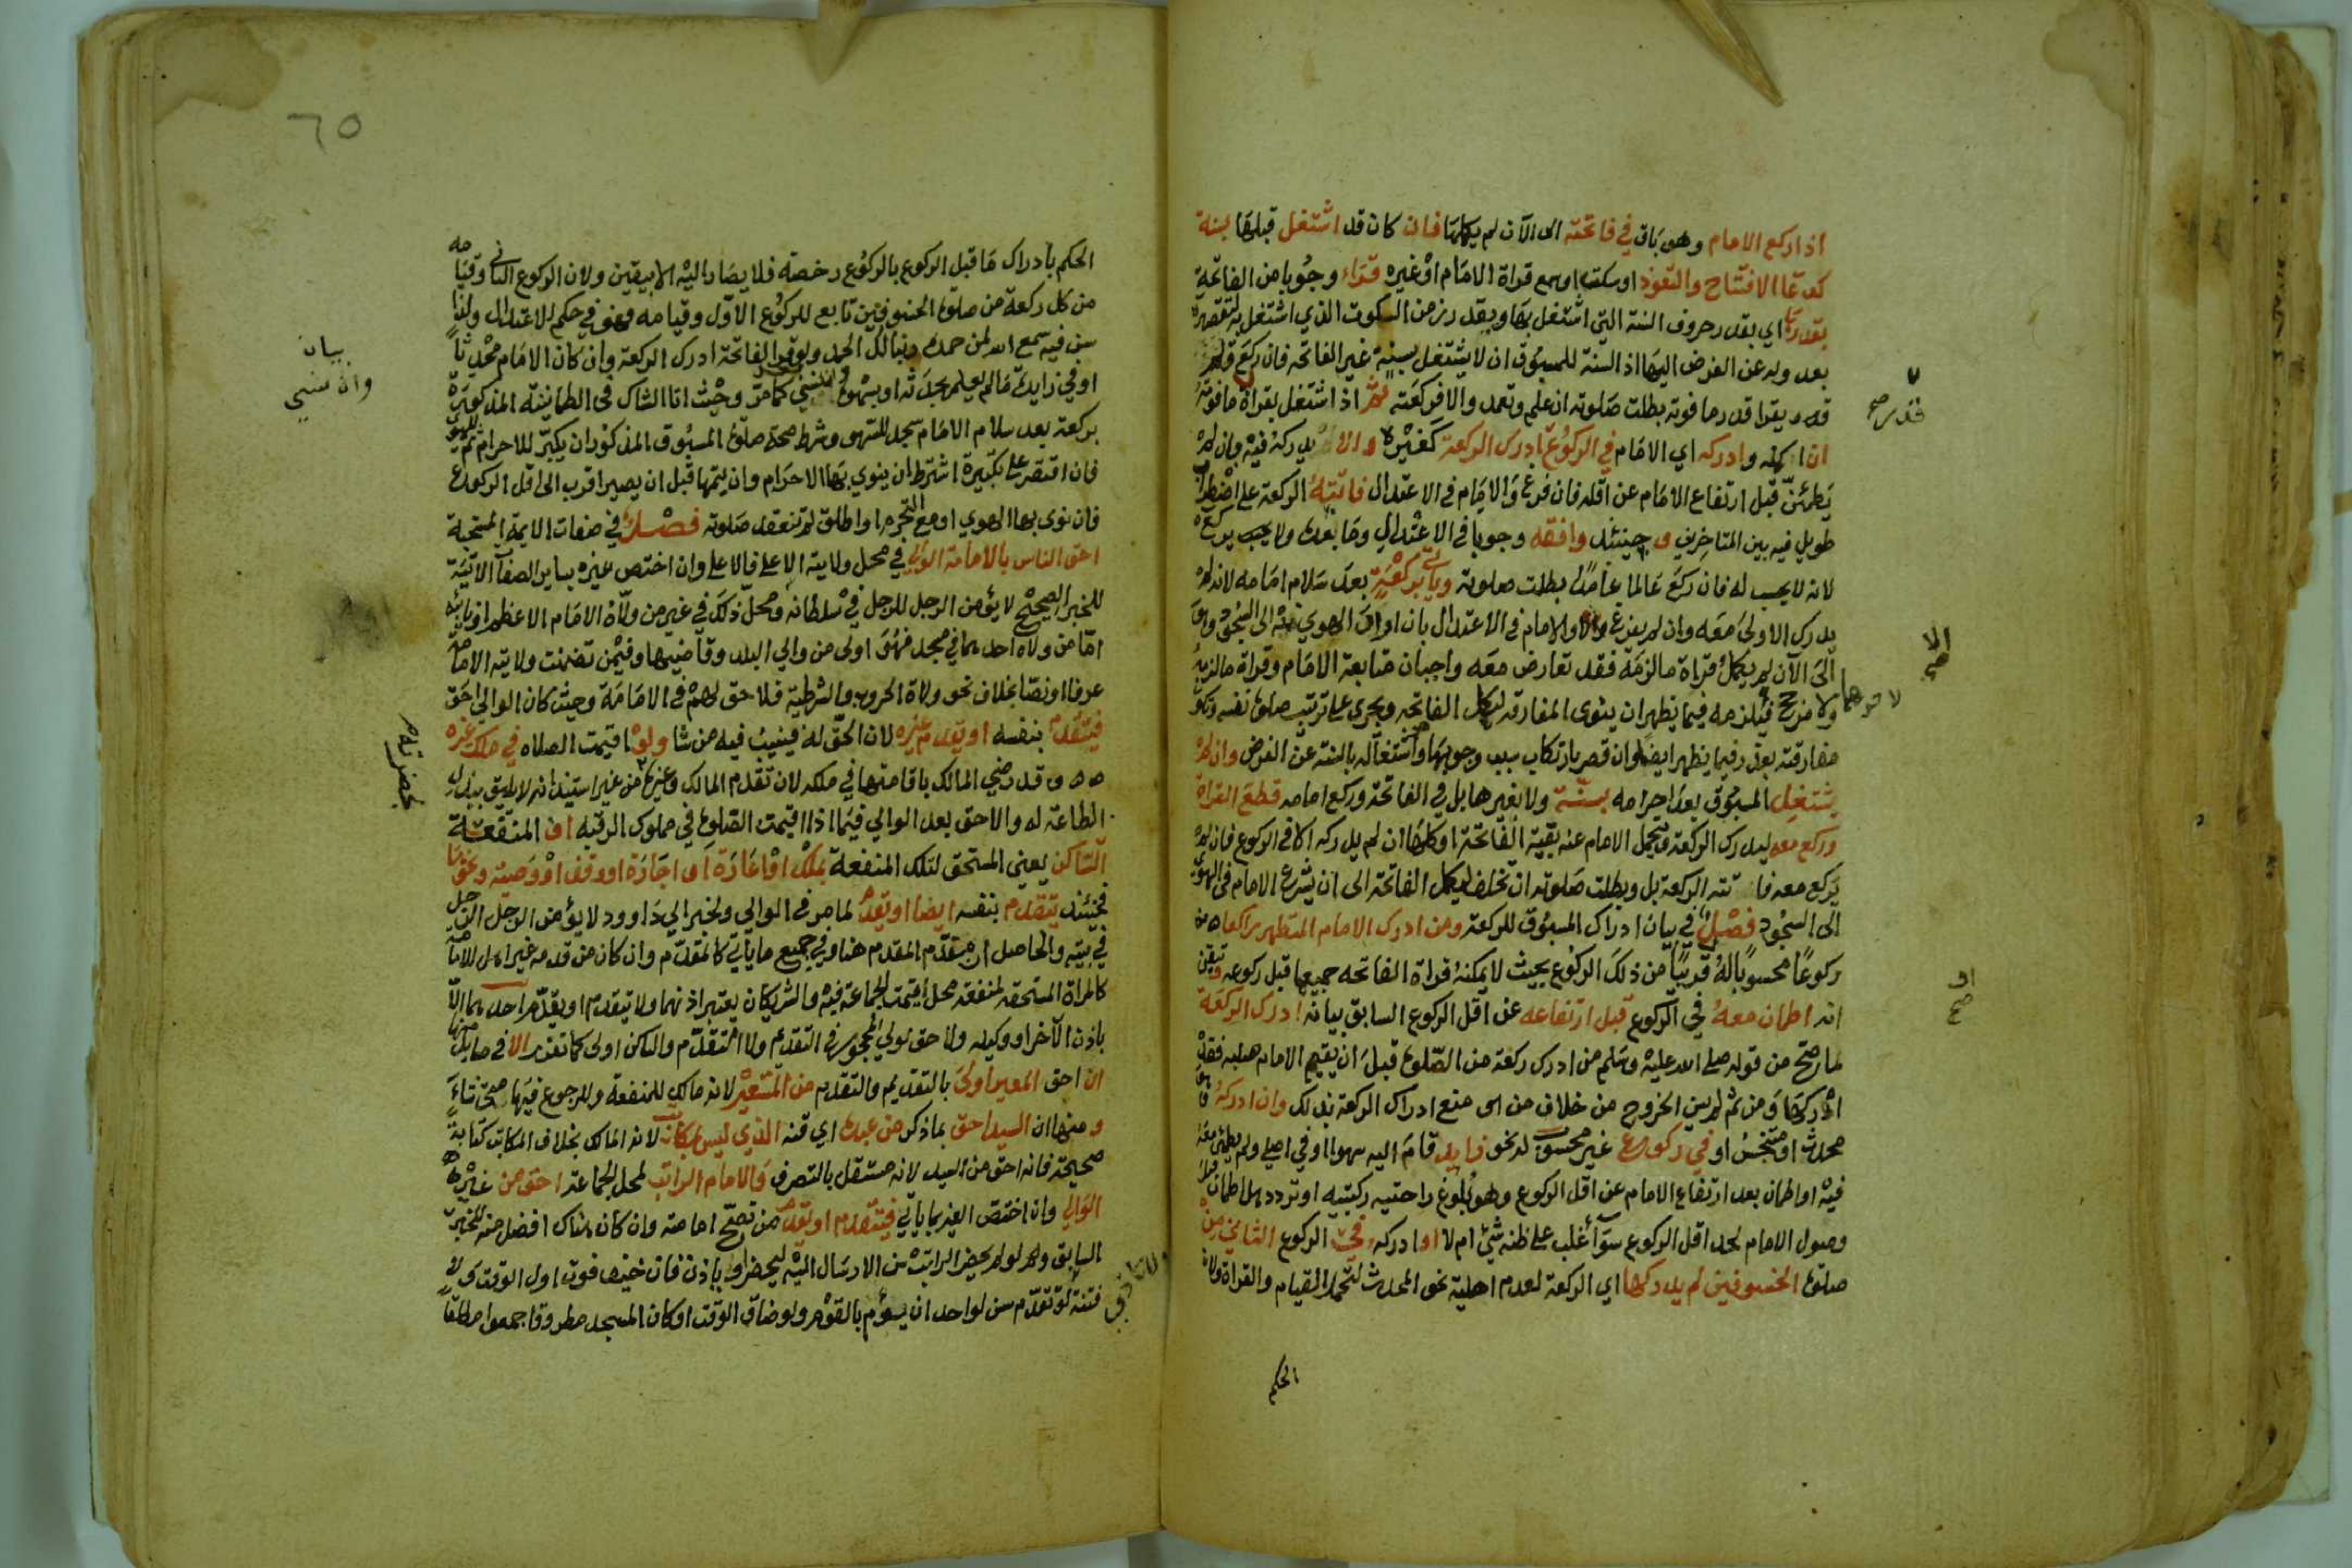 اذا ركع الامام وهو باق في فاتحته الى الآن لم يكملها فان كان قد اشتغل قبلها بسنة
كدعا الافتتاح والتعوذ او سكت او سمع قراة الامام او غيره قراء وجوبا من الفاتحة
بقدرها اي بقدر حروف السنة التي اشتغل بها وبقدر زمن السكوت الذي اشتغل به لتقصيره
بعدوله عن الفرض اليها اذ السنة للمسبوق ان لا يشتغل بسنة غير الفاتحه فان ركع ولم
يقرا قدر ما فوته بطلت صلوته ان علم وتعمد والا فركعته ثم اذا اشتغل بقراة ما فوته
ان اكمله وادركه اي الامام في الركوع ادرك الركعة كغيره والا يدركه فيه بان لم
يطمئن قبل ارتفاع الامام عن اقله فان فرغ والامام في الاعتدال فاتته الركعة على اضطراب
طويل فيه بين المتاخرين وحينئذ وافقه وجوبا في الاعتدال وما بعده ولا يركع
لانه لا يحسب له فان ركع عالما عامدا بطلت صلوته وياتي بركعة بعد سلام امامه لانه لم
يدرك الاولى معه وان لم يفرغ والامام في الاعتدال بان اراد الهوي منه الى السجود وهو
الى الآن لم يكمل قراة ما لزمه فقد تعارض معه واجبان متابعة الامام وقراة ما لزمه
ولا مرجح فيلزمه فيما يظهر ان ينوى المفارقه ليكمل الفاتحه ويجرى على ترتيب صلوة نفسه وتكون
مفارقته بعذر فيما يظهر ايضا وان قصر بارتكاب سبب وجوبها واشتغاله بالسنة عن الفرض وان لم
يشتغل المسبوق بعد احرامه بسنة ولا بغيرها بل في الفاتحة وركع امامه قطع القراة
وركع معه ليدرك الركعة ويتحمل الامام عنه بقية الفاتحة او كلها ان لم يدركه الا في الركوع فان لم
يركع معه فاتته الركعة بل وبطلت صلوته ان تخلف ليكمل الفاتحة الى ان يشرع الامام في الهوي
الى السجود فصل في بيان ادراك المسبوق للركعة ومن ادرك الامام المتطهر راكعا
ركوعا محسوبا له قريبا من ذلك الركوع بحيث لا يمكنه قراة الفاتحه جميعها قبل ركوعه وتيقن
انه اطمان معه في الركوع قبل ارتفاعه عن اقل الركوع السابق بيانه ادرك الركعة
لما صح من قوله صلى الله عليه وسلم من ادرك ركعة من الصلوة قبل ان يقيم الامام صلبه فقد
ادركها ومن ثم لم يسن الخروج من خلاف من منع ادراك الركعة بذلك وان ادركه
محدث او متنجس او في ركوع غير محسوب له نحو زايد قام اليه سهوا او في اصلي ولم يطمئن معه
فيه او اطمان بعد ارتفاع الامام عن اقل الركوع وهو بلوغ راحتيه ركبتيه او تردد هل اطمان قبل
وصول الامام لحد اقل الركوع سوآ أغلب على ظنه شيء ام لا او ادركه في الركوع الثاني من
صلوة الخسوفين لم يدركها اي الركعة لعدم اهلية نحو المحدث لتحمل القيام والقراة ولان
الحكم
قدر صح
الا صح
او صح
٦٥
الحكم بادراك ما قبل الركوع بالركوع رخصة فلا يصار اليه الا بيقين ولان الركوع الثاني وقيامه
من كل ركعة من صلوة الخسوفين تابع للركوع الاول وقيامه فهو في حكم الاعتدال ولذا
سن فيه سمع الله لمن حمده ربنا لك الحمد ولو قرا الفاتحة ادرك الركعة وان كان الامام محدثا
او في زايدة ما لم يعلم بحدثه او بسهوه كما مر وحيث اتا الشاك في الطمانينة المذكورة
بركعة بعد سلام الامام سجد للسهو وشرط صحة صلوة المسبوق المذكور ان يكبر للاحرام ثم للهوي
فان اقتصر على تكبيرة اشترط ان ينوي بها الاحرام وان يتمها قبل ان يصير اقرب الى اقل الركوع
فان نوى بها الهوي او مع التحرم او اطلق لم تنعقد صلوته فصل في صفات الايمة المستحبة
احق الناس بالامامة الوالي في محل ولايته الاعلى فالاعلى وان اختص غيره بساير الصفات الاتية
للخبر الصحيح لا يؤمن الرجل الرجل في سلطانه ومحل ذلك في غير من ولاه الامام الاعظم او نايبه
اما من ولاه احدهما في مسجد فهو اولى من والي البلد وقاضيها وفيمن تضمنت ولايته الامامة
عرفا او نصا بخلاف نحو ولاة الحروب والشرطية فلا حق لهم في الامامة وحيث كان الوالي احق
فيتقدم بنفسه او يقدم غيره لان الحق له فينيب فيه من شا ولو اقيمت الصلاه في ملك غيره
وقد رضي المالك باقامتها في ملكه لان تقدم المالك وغيره من غير استيذانه لا يليق ببذل
الطاعة له والاحق بعد الوالي فيما اذا اقيمت الصلوة في مملوك الرقبه او المنفعة
الساكن يعني المستحق لتلك المنفعة بملك او اعارة او اجارة او وقف او وصية ونحوها
فحينئذ يتقدم بنفسه ايضا او يقدم لما مر في الوالي ولخبر ابي داوود لا يؤمن الرجل الرجل
في بيته والحاصل ان مقدم المقدم هنا وفي جميع ما ياتي كالمقدم وان كان من قدمه غير اهل للامامة
كالمراة المستحقه لمنفعة محل اقيمت الجماعة فيه والشريكان يعتبر اذنهما ولا يتقدم او يقدم احدهما الا
باذن الآخر او وكيله ولا حق لولي المحجور في التقدم ولا التقديم والساكن اولى كما تقرر الا في مسايل منها
ان احق المعير اولى بالتقديم والتقدم من المستعير لانه مالك للمنفعة وله الرجوع فيها متى شاء
ومنها ان السيد احق بما ذكر من عبده اي قنه الذي ليس بمكاتب لانه المالك بخلاف المكاتب كتابة
صحيحة فانه احق من السيد لانه مستقل بالتصرف والامام الراتب لمحل الجماعة احق من غير
الوالي وان اختص الغير بما ياتي فيتقدم او يقدم من تصح امامته وان كان هناك افضل منه للخبر
السابق ولو لم يحضر الراتب سن الارسال اليه ليحضر او ياذن فان خيف فوت اول الوقت ولا
فتنة لو تقدم سن لواحد ان يؤم بالقوم ولو ضاق الوقت او كان المسجد مطروقا جمعوا مطلقا
بيان
وان نسي
بحضرته